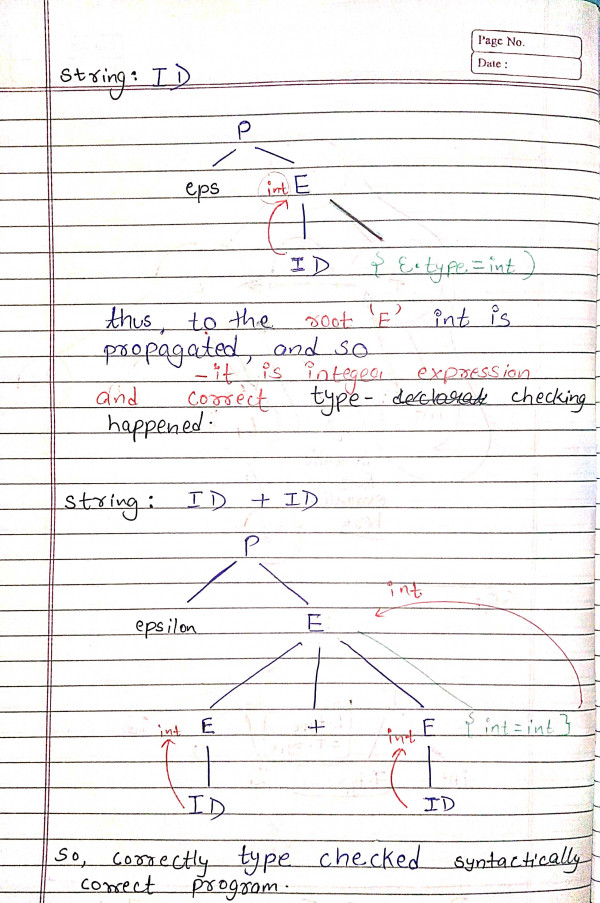 Page No.
Date :
string: ID
P
eps int E
ID { E.type = int )
thus, to the root 'E' int is
propagated, and so
- it is integer expression
and correct type- declarat checking
happened.
string: ID + ID
P
int
epsilon E
int E + int E { int = int }
ID ID
so, correctly type checked syntactically
correct program.